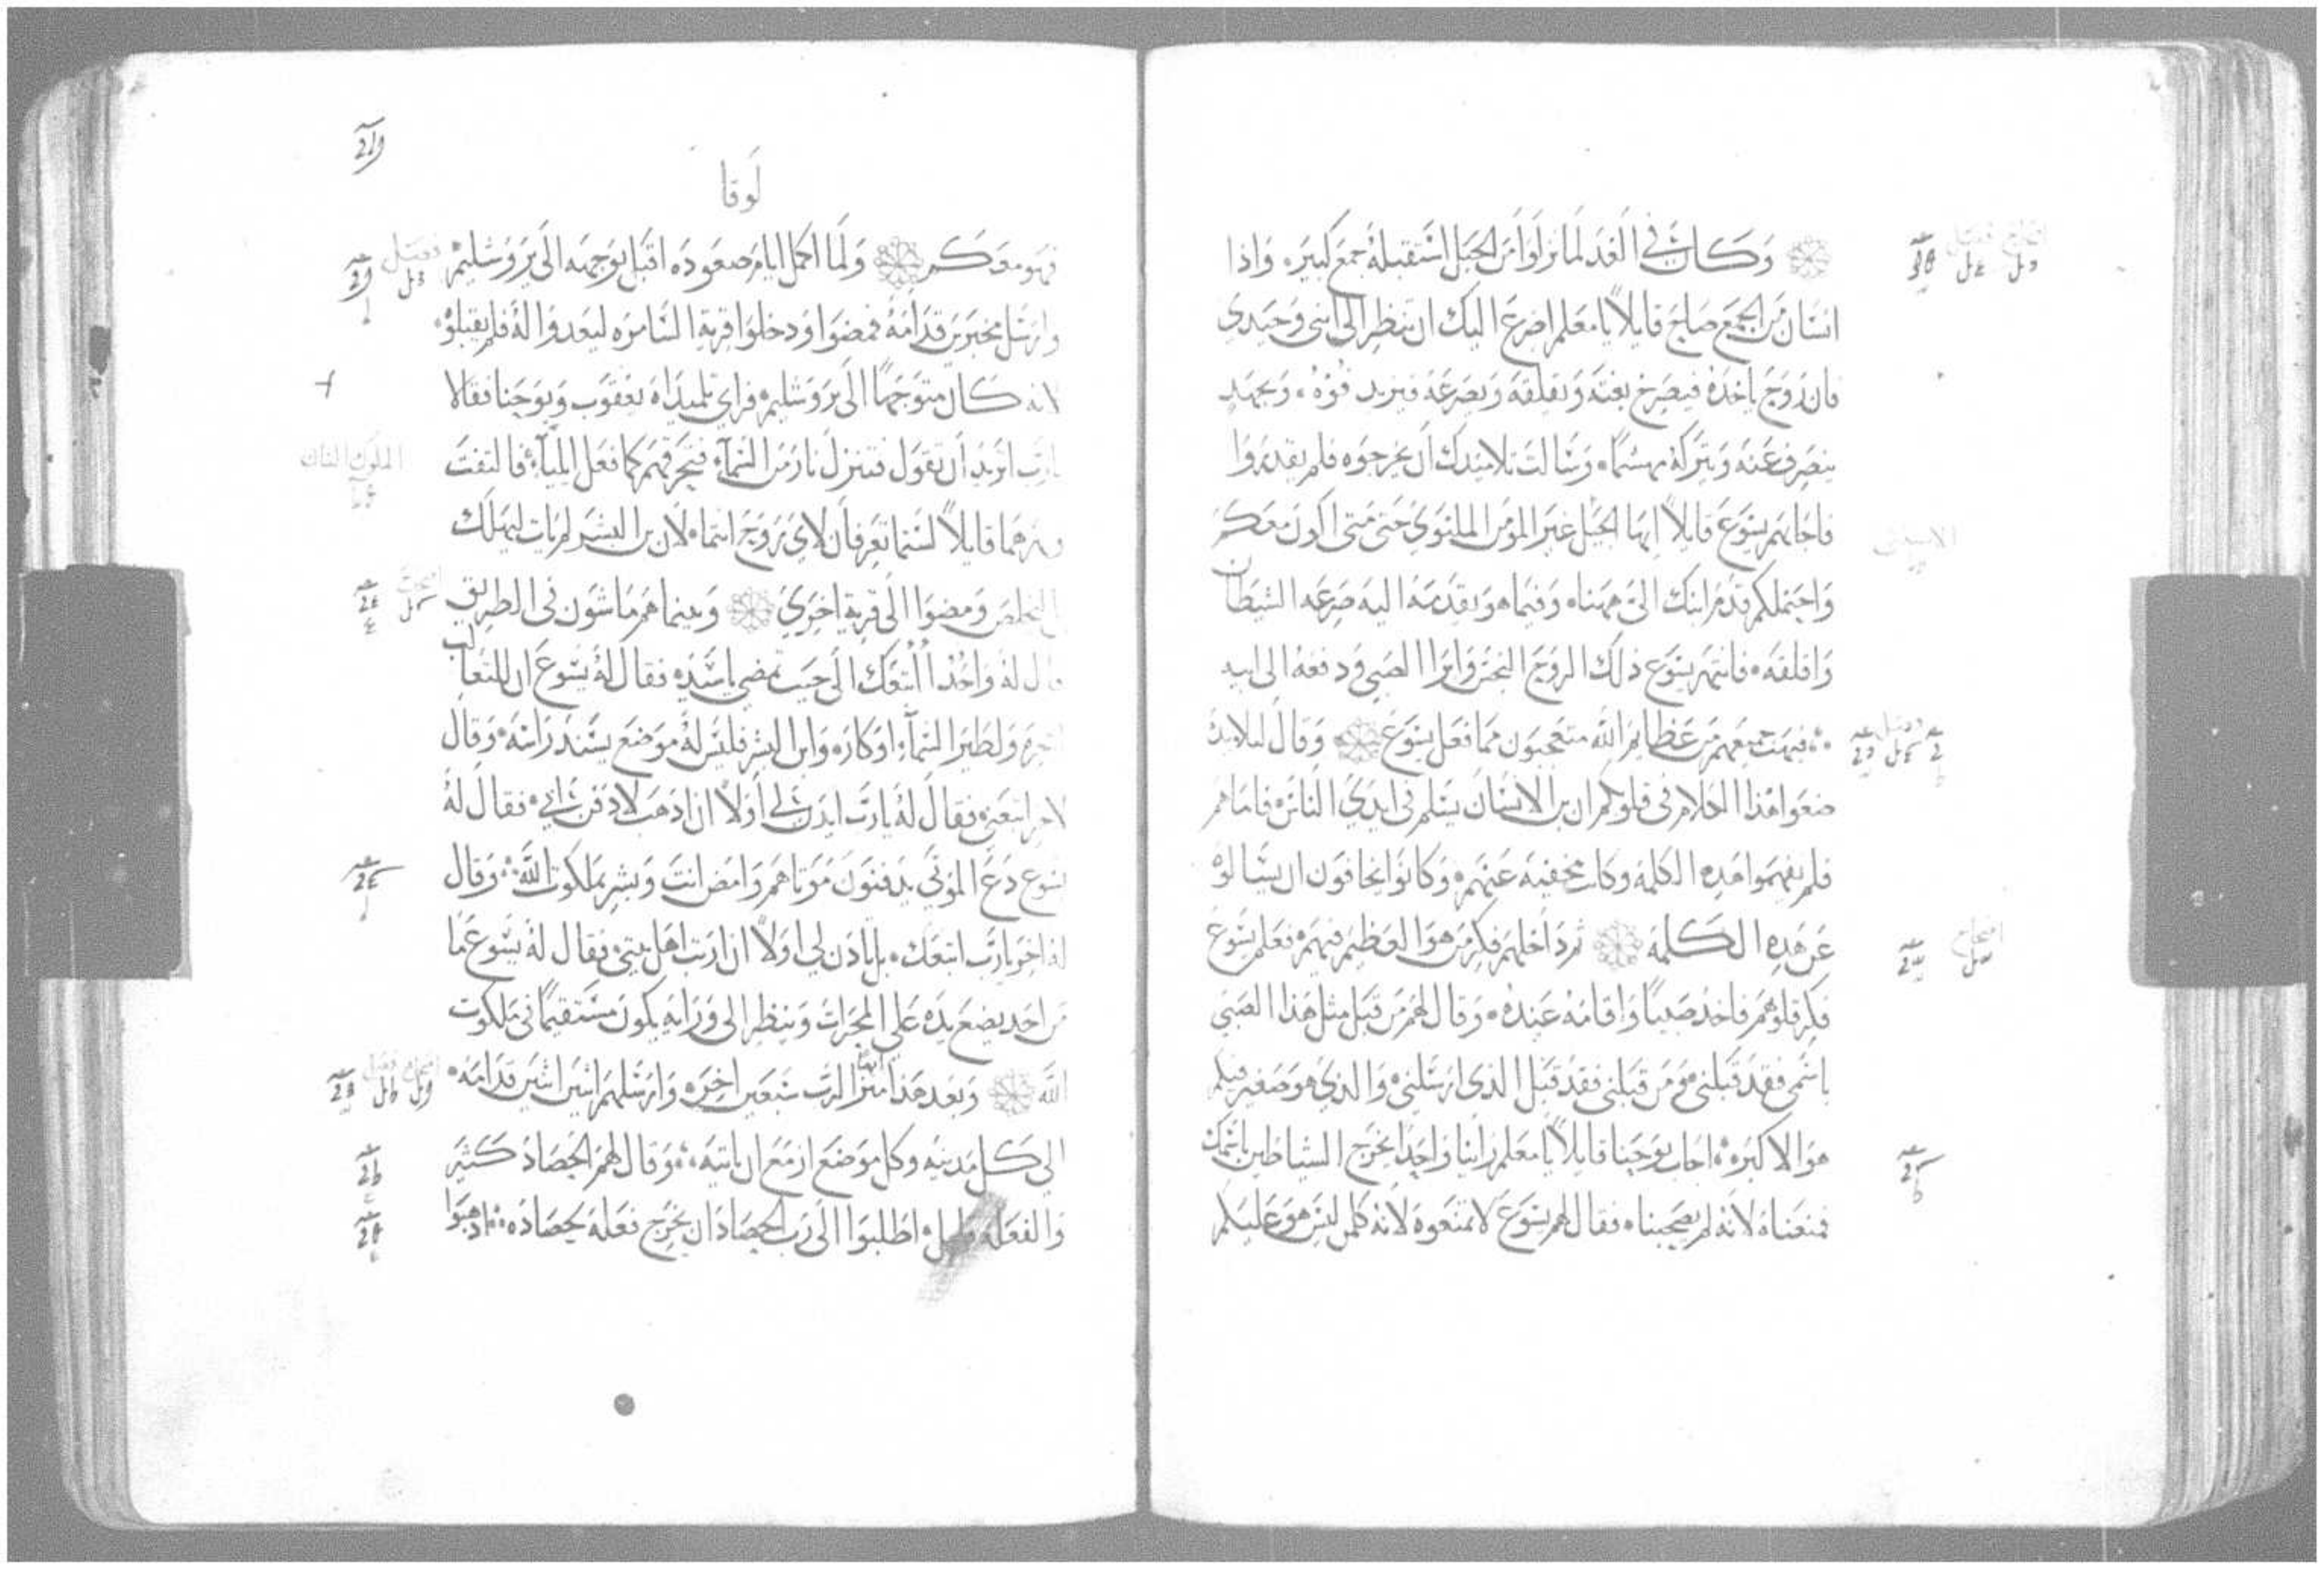 وكان في الغد لما نزلوا من الجبل استقبله جمع كبير، واذا
انسان من الجمع صاح قايلاً يا معلم اضرع اليك ان تنظر الى ابني وحيدي
فان روح ياخده فيصرخ بغته ويقلقه ويصرعه فيزبد فوه، وبجهد
ينصرف عنه ويتركه مهشما، وسالت تلاميدك ان يخرجوه فلم يقدروا
فاجابهم يسوع قايلاً ايها الجيل غير المومن الملتوي حتى متى اكون معكم
واحتملكم قدم ابنك الى ههنا، وفيما هو يقدمه اليه صرعه الشيطان
واقلقه، فانتهر يسوع ذلك الروح النجس وابرا الصبي ودفعه الى ابيه
فبهت جميعهم من عظايم الله متعجبون مما فعل يسوع وقال لتلاميده
ضعوا هذا الكلام في قلوبكم ان بن الانسان يسلم في ايدي الناس، فاما هم
فلم يفهموا هده الكلمه وكانت مخفيه عنهم، وكانوا يخافون ان يسالوه
عن هده الكلمه ثم داخلهم فكر من هو العظيم فيهم، فعلم يسوع
فكر قلوبهم فاخد صبيا واقامه عنده، وقال لهم من قبل مثل هذا الصبي
باسمي فقد قبلني، ومن قبلني فقد قبل الذي ارسلني، والذي هو صغير فيكم
هو الاكبر، اجاب يوحنا قايلاً يا معلم راينا واحدا يخرج الشياطين باسمك
فمنعناه لانه لم يصحبنا، فقال لهم يسوع لا تمنعوه لانه كلمن ليس هو عليكم
لوقا
فهو معكم ولما اكمل ايام صعوده اقبل بوجهه الى يروشليم
وارسل مخبرين قدامه فمضوا ودخلوا قرية السامره ليعدوا له فلم يقبلوه
لانه كان متوجها الى يروشليم، فراي تلميداه يعقوب ويوحنا فقالا
يارب اتريد ان نقول فتنزل نار من السماء فتحرقهم كما فعل ايلياء، فالتفت
ونهرهما قايلاً لستما تعرفان لاي روح انتما، لان بن البشر لم يات ليهلك
بل ليخلص ومضوا الى قرية اخري وبينما هم ماشون في الطريق
قال له واحد اتبعك الى حيث تمضي ياسيد، فقال له يسوع ان للتعالب
اجحره ولطير السماء اوكار، وابن البشر فليس له موضع يسند راسه، وقال
لاخر اتبعني، فقال له يارب ايدن لي اولاً ان اذهب لادفن ابي، فقال له
يسوع دع الموتي يدفنون موتاهم وامض انت وبشر بملكوت الله، وقال
له اخر يارب اتبعك، بل ياذن لي اولاً ان ارتب اهل بيتي، فقال له يسوع ما
من احد يضع يده علي المحرات وينظر الى ورايه يكون مستقيما في ملكوت
الله وبعد هذا ميز الرب سبعين اخر، وارسلهم اثنين اثنين قدامه
الي كل مدينه وكل موضع ازمع ان ياتيه، وقال لهم الحصاد كثير
والفعله قليل، اطلبوا الى رب الحصاد ان يخرج فعله لحصاده، ادهبوا